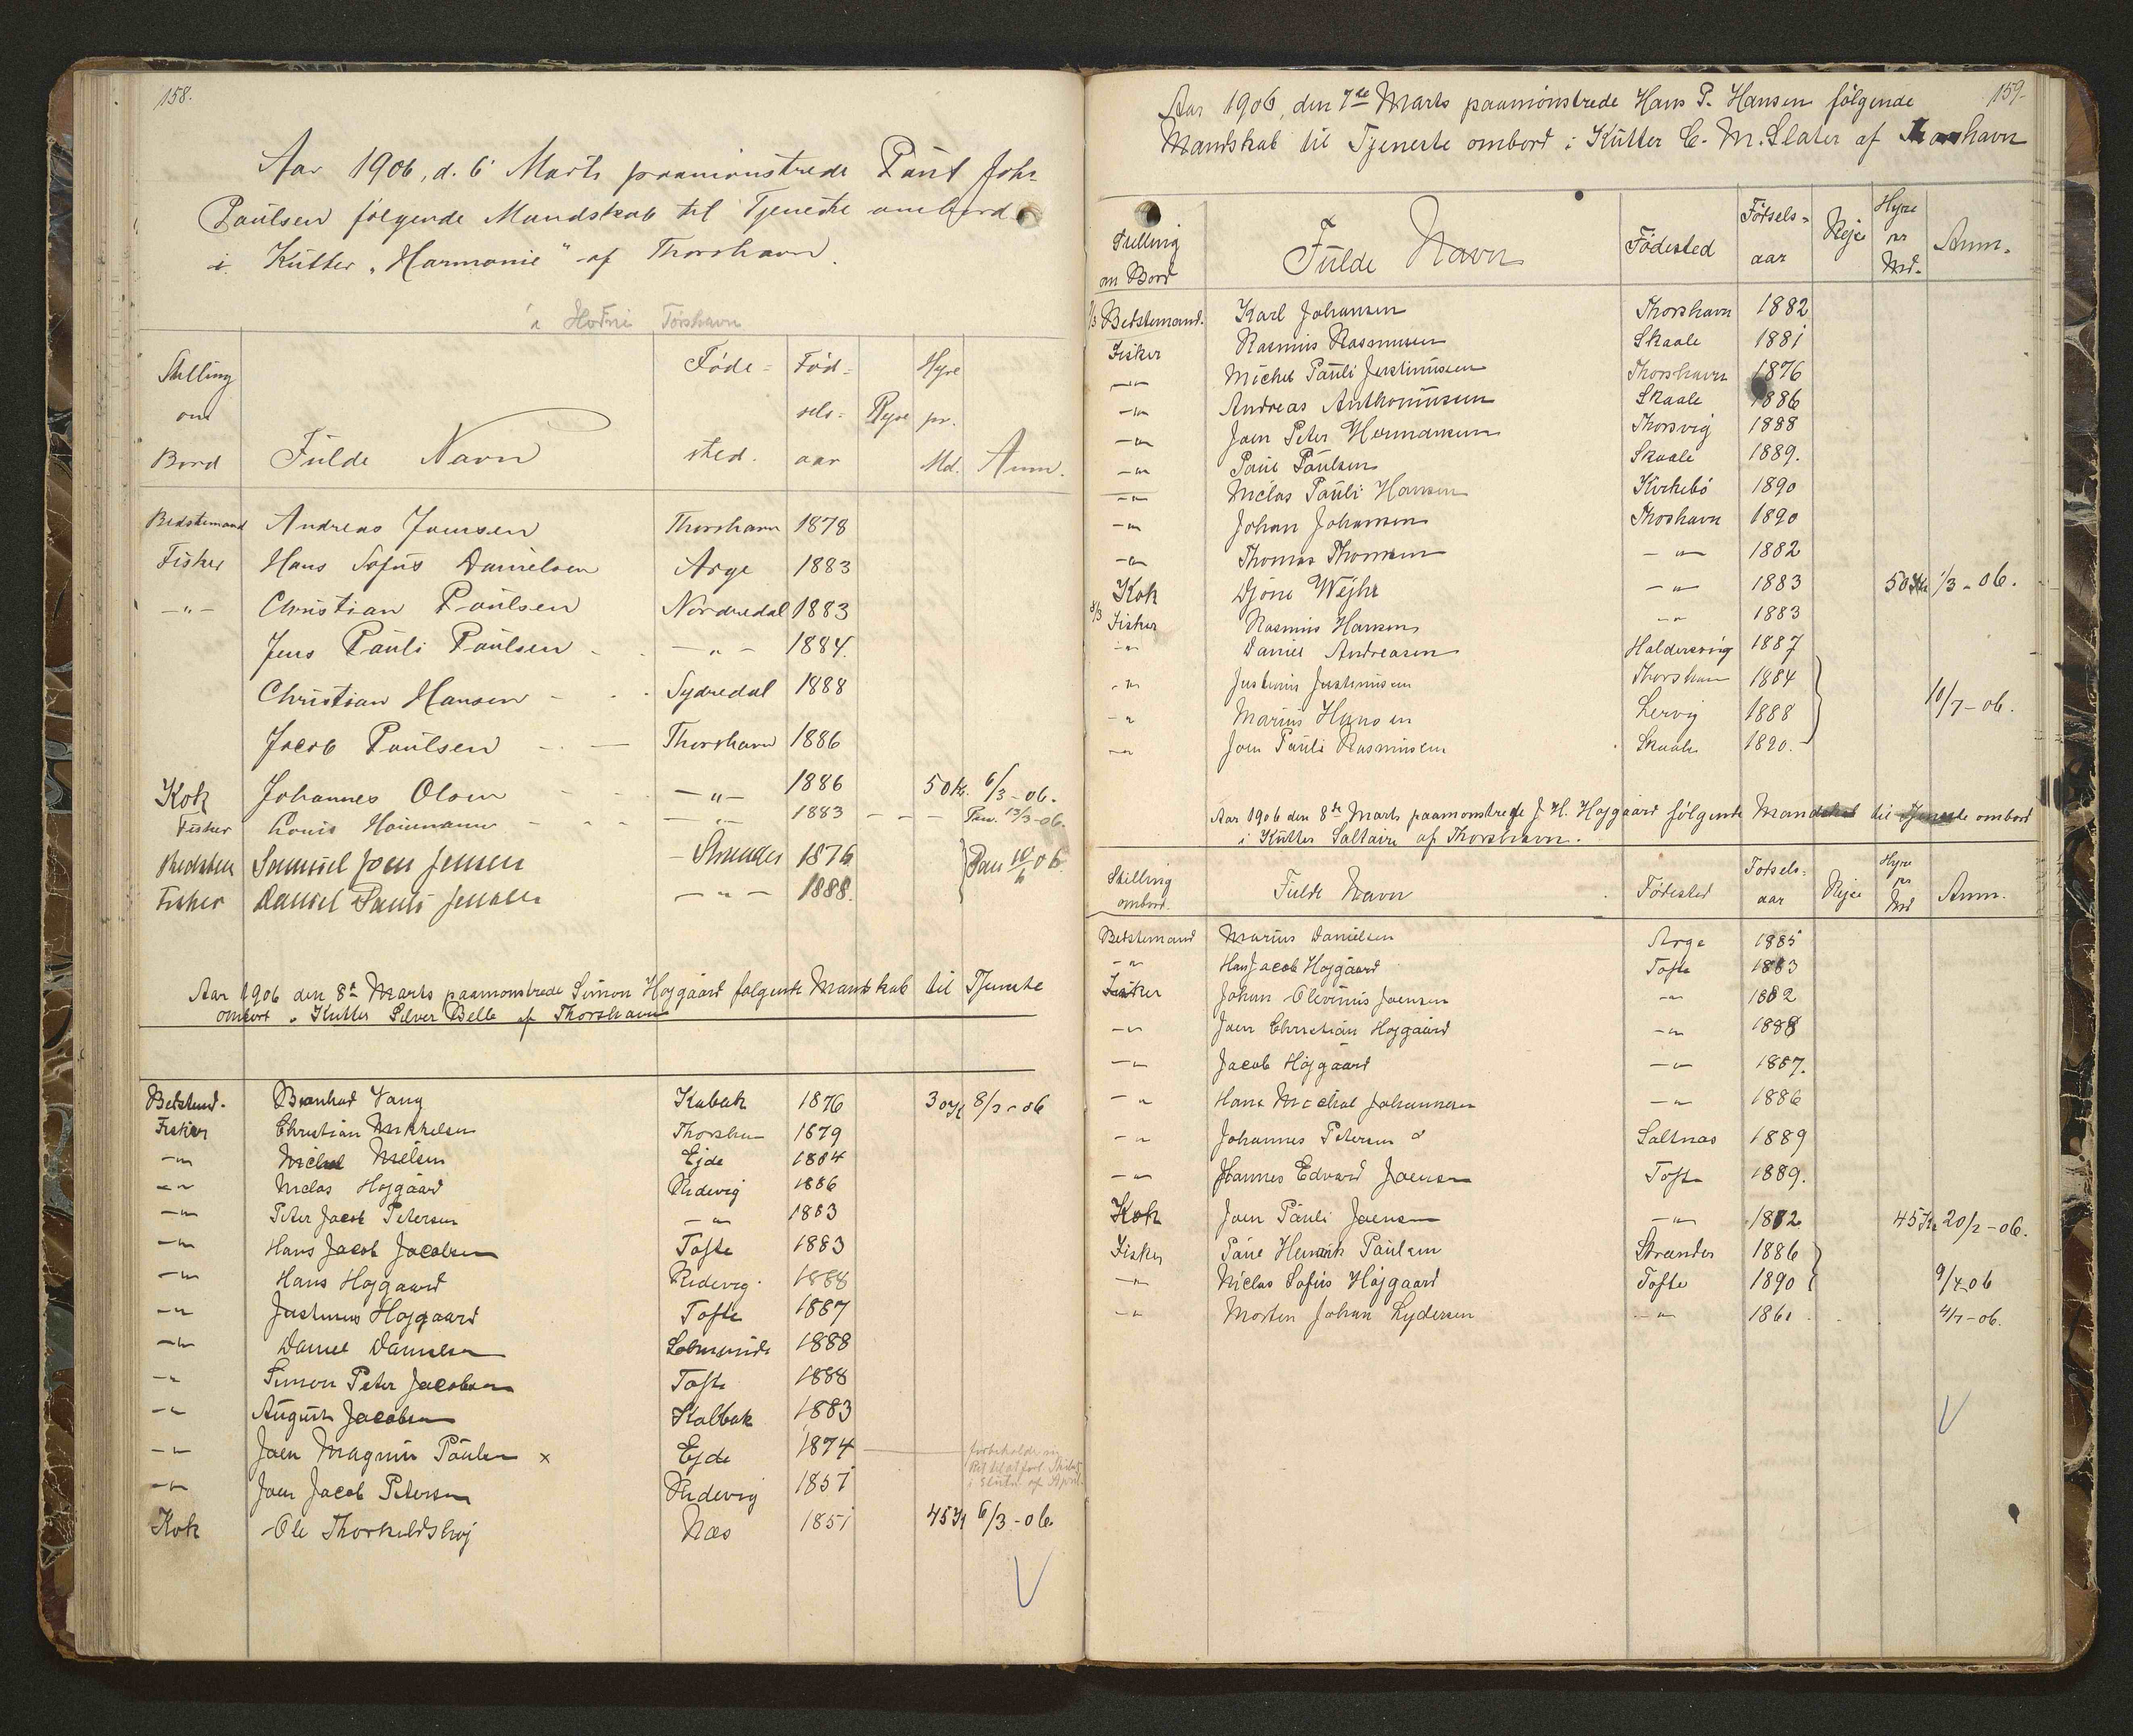 158.
Aar 1906, d. 6 Marts paamönstrede Paul Joh.
Paulsen følgende Mandskab til Tjeneste ombord
i Kutter „Harmonie" af Thorshavn.
Tórshavn
Stilling om Bord Fulde Navn Føde=sted. Fødsels=aar Rejse Hyre pr. Md. Anm.
Bedstemand Andreas Joensen Thorshavn 1878
Fisker Hans Sofus Danielsen Arge 1883
-"- Christian Paulsen Nordredal 1883
Jens Pauli Paulsen -"- 1884.
Christian Hansen Sydredal 1888
Jacob Paulsen Thorshavn 1886
Kok Johannes Olsen -"- 1886 50 Kr. 6/3-06.
Fisker Louis -"- 1883 13/3-06.
Samuel Joen Jensen 1876
Fisker Daniel Pauli Jensen -"- 1888.
Aar 1906 den 8de Marts paamonstrede Simon Højgaard følgende Mandskab til Tjeneste
ombord i Kutter Silver Belle af Thorshavn
Bedstemd. Vang Kabak 1876 30 Kr 8/3-06
Fisker Christian Mikkelsen Thorshavn 1879
-"- Michal Nielsen Ejde 1884
-"- Niclas Højgaard Ridevig 1886
-"- Peter Jacob Petersen -"- 1883
-"- Hans Jacob Jacobsen Tofte 1883
-"- Hans Højgaard Ridevig 1888
-"- Justinus Højgaard Tofte 1887
-"- Daniel Danielsen 1888
-"- Simon Peter Jacobsen Tofte 1888
-"- August Jacobsen Kalbak 1883
-"- Joen Magnus Paulsen x Ejde 1874
i Slutn. af April.
-"- Joen Jacob Petersen Ridevig 1857
Kok Ole Thorkildshøj Næs 1851 45 Kr 6/3-06.
159.
Aar 1906, den 7de Marts paamönstrede Hans P. Hansen følgende
Mandskab til Tjeneste ombord i Kutter C. M. Slater af Thorshavn
Stilling om Bord Fulde Navn Fødested Fødsels=aar Rejse Hyre pr Md. Anm.
1/3 Bedstemand. Karl Johansen Thorshavn 1882
Fisker Rasmus Rasmussen Skaale 1881
-"- Michel Pauli Justinussen Thorshavn 1876
-"- Andreas Anthoniussen Skaale 1886
-"- Joen Peter Hermansen Thorsvig 1888
-"- Poul Paulsen Skaale 1889.
-"- Niclas Pauli Hansen Kirkebö 1890
-"- Johan Johansen Thoshavn 1890
-"- Thomas Thomsen -"- 1882
Kok Djóni Wejhe -"- 1883 50 Kr 1/3-06.
8/3 Fisker Rasmus Hansen -"- 1883
-"- Daniel Andreasen Haldersvig 1887
-"- Justinus Justinussen Thorshavn 1884
-"- Marius Hansen Lervig 1888 10/7-06.
-"- Joen Pauli Rasmussen Skaale 1890.
Aar 1906 den 8de Marts paamonstrede J. H. Højgaard følgende Mandskab til Tjeneste ombord
i Kutter Saltaire af Thorshavn.
Stilling ombord. Fulde Navn Fødested Fødsels=aar Rejse Hyre pr Md Anm.
Bedstemand Marius Danielsen Arge 1885
-"- Hans Jacob Højgaard Tofte 1883
Fisker Johan Olevinus Joensen -"- 1882
-"- Joen Christian Højgaard -"- 1888
-"- Jacob Højgaard -"- 1887.
-"- Hans Michal Johannesen -"- 1886
-"- Johannes Petersen Saltnæs 1889
-"- Hannes Edvard Joensen Tofte 1889.
Kok Joen Pauli Joensen -"- 1872 45 Kr 20/2-06.
Fisker Paul Henrik Paulsen Strænder 1886
-"- Niclas Sofus Højgaard Tofte 1890 9/4 06
-"- Morten Johan Lydersen -"- 1861 4/7-06.